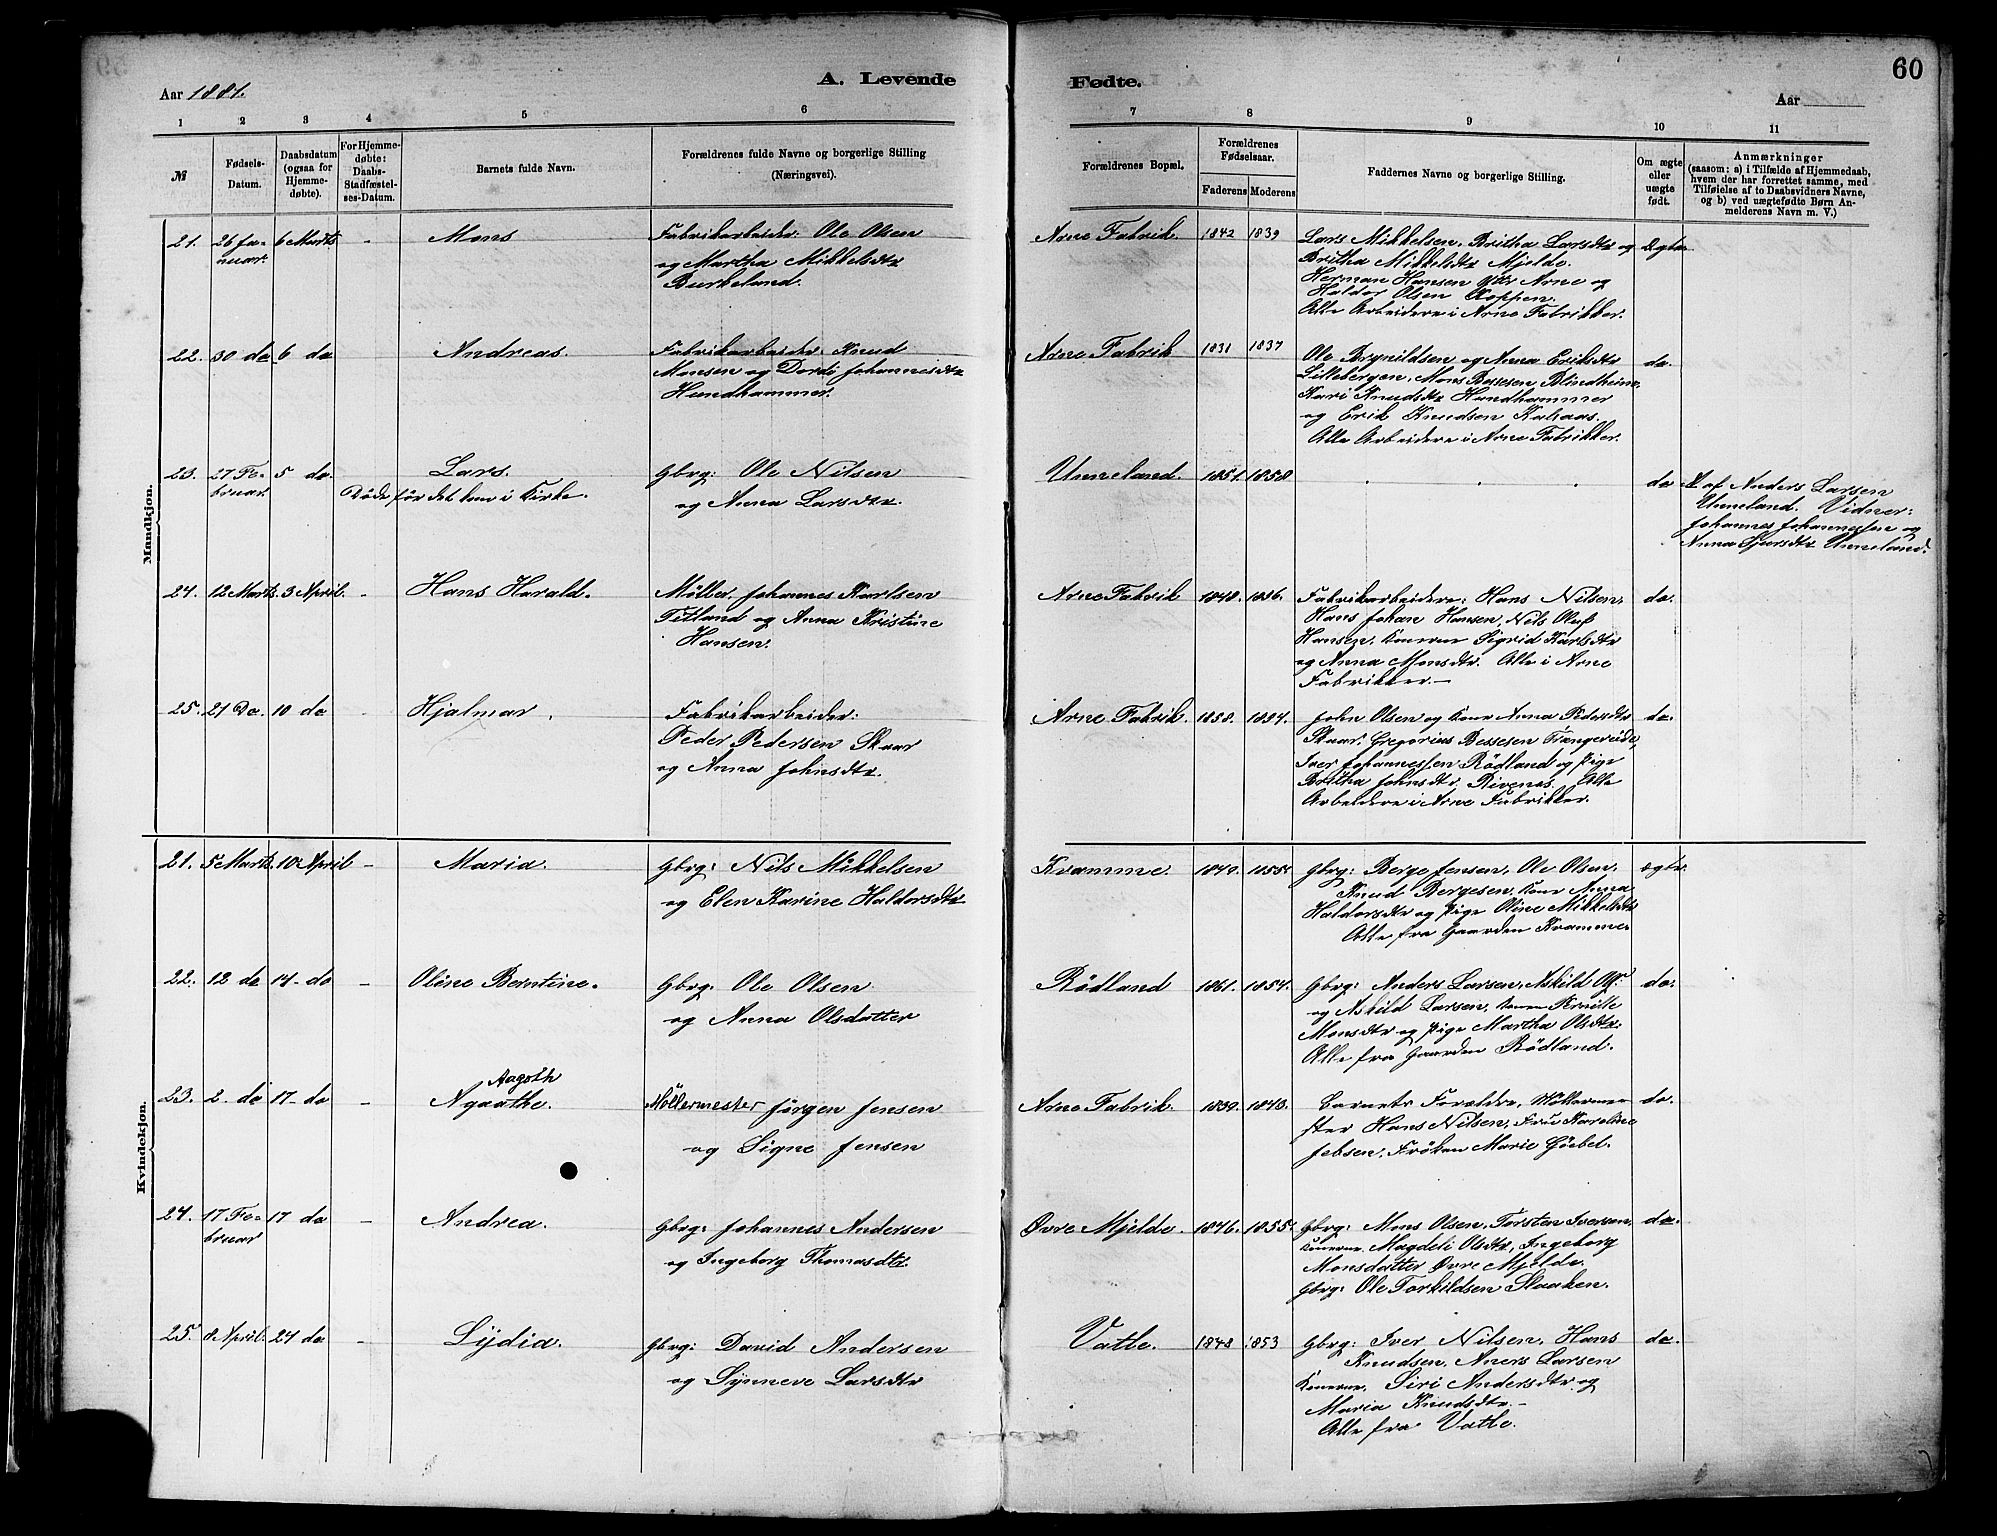 60
A. Levende
Fødte.
Aar 1881.
Aar
1 2 3 4 5 6 7 8 9 10 11
№
Fødsels-Datum.
Daabsdatum (ogsaa for Hjemmedøbte).
For Hjemmedøbte: Daabs-Stadfæstelses-Datum.
Barnets fulde Navn.
Forældrenes fulde Navne og borgerlige Stilling
(Næringsvei).
Forældrenes Bopæl.
Forældrenes Fødselsaar.
Faderens Moderens
Faddernes Navne og borgerlige Stilling.
Om ægte eller uægte født.
Anmærkninger
(saasom: a) i Tilfælde af Hjemmedaab,
hvem der har forrettet samme, med
Tilføielse af to Daabsvidners Navne,
og b) ved uægtefødte Børn Anmelderens Navn m. V.)
Mandkjøn.
21. 26 Januar. 6 Marts - Mons
Fabrikarbeider: Ole Olsen
og Martha Mikkelsdtr
Burkeland.
Arne Fabrik. 1842 1839
Lars Mikkelsen, Britha Larsdtr og
Britha Mikkelsdtr Mjelde.
Herman Hansen Ytre Arne og
Haldor Olsen Koppen.
Alle Arbeidere i Arne Fabrikker.
Ægte
22. 30 do 6 do Andreas.
Fabrikarbeider: Knud
Monsen og Dordi Johannesdtr
Hundhammer.
Arne Fabrik 1831 1837
Ole Brynildsen og Anna Eriksdtr
Lillebergen, Mons Bessesen Blindheim,
Kari Knudsdtr Hundhammer
og Erik Knudsen
Alle Arbeidere i Arne Fabrikker.
do.
23. 27 Februar. 5 do. Lars.
Døde før det kom i Kirke.
Gbrg: Ole Nilsen
og Anna Larsdtr.
Unneland. 1851. 1858
do
af Anders Larsen
Unneland. Vidner:
Johannes Johannessen og
Anna Sjursdtr Unneland.
24. 12 Marts. 3 April. - Hans Harald.
Møller. Johannes Karlsen
Titland og Anna Kristine
Hansen.
Arne Fabrik 1848. 1856.
Fabrikarbeidere: Hans Nilsen,
Hans Johan Hansen, Nils Oluf
Hansen, Konerne Sigrid Karlsdtr
og Anna Monsdtr. Alle i Arne
Fabrikker.—
do.
25. 21 Do. 10 do Hjalmar.
Fabrikarbeider:
Peder Pedersen Skaar
og Anna Johnsdtr.
Arne Fabrik. 1858. 1854.
John Olsen og Kone Anna Pedersdtr
Skaar. Gregorius Bessesen Trængereide,
Iver Johannessen Rödland og Pige
Britha Johnsdtr Rivenes. Alle
Arbeidere i Arne Fabrikker.
do.
Kvindekjøn.
21. 5 Marts. 10 April - Maria.
Gbrg: Nils Mikkelsen
og Elen Karine Haldorsdtr
Kvamme 1849. 1855.
Gbrg: Berge Jensen, Ole Olsen,
Knud Bergesen, Kone Anna
Haldorsdtr og Pige Oline Mikkelsdtr
Alle fra Gaarden Kvamme.
ægte
22. 12 do 14 do - Oline Berntine.
Gbrg. Ole Olsen
og Anna Olsdatter
Rödland 1861. 1854.
Gbrg: Anders Larsen, Askild Ols.
og Askild Larsen,
Monsdtr og Pige Martha Olsdtr.
Alle fra Gaarden Rödland.
do.
23. 2 do 17 do - Aagoth
Agaathe.
Möllermester Jørgen Jensen
og Signe Jensen
Arne Fabrik. 1839. 1843.
Barnets Forældre, Möllermester
Hans Nilsen, Frue Karoline
Jebsen, Fröken Marie Göebel.
do.
24. 17 Februar 17 do - Andrea.
Gbrg: Johannes Andersen
og Ingeborg Thomasdtr.
Øvre Mjelde. 1846. 1855.
Gbrg: Mons Olsen, Torsten Iversen,
Konerne Magdeli Olsdtr, Ingeborg
Monsdatter Øvre Mjelde.
Gbrg: Ole Torkildsen Slaaken.
do.
25. 8 April. 24 do - Lydia.
Gbrg: David Andersen
og Synneve Larsdtr
Vatle. 1848 1853
Gbrg: Iver Nilsen, Hans
Knudsen, Aners Larsen
Konerne, Siri Andersdtr og
Maria Knudsdtr.—
Alle fra Vatle.
do.